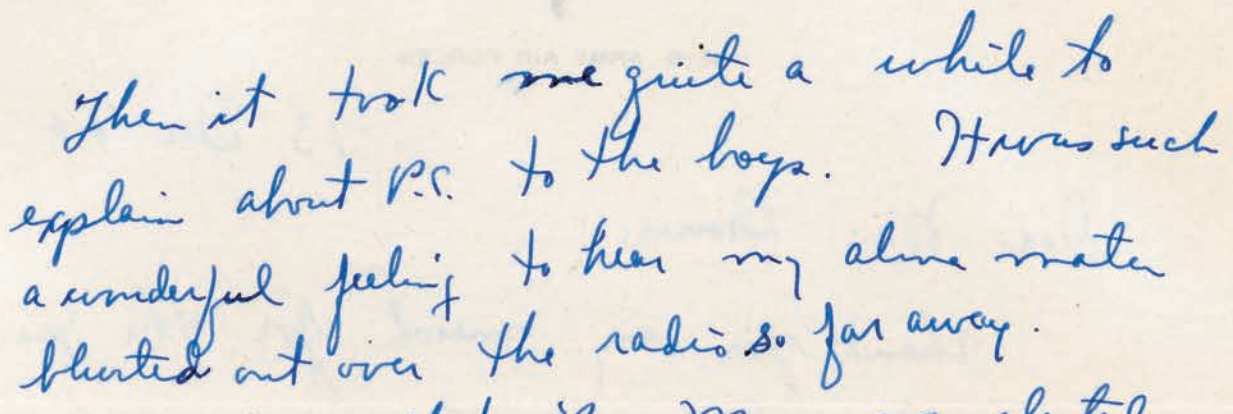 Then it took me quite a while to
explain about P.S. to the boys. It was such
a wonderful feeling to hear my alma mater
blurted out over the radio so far away.